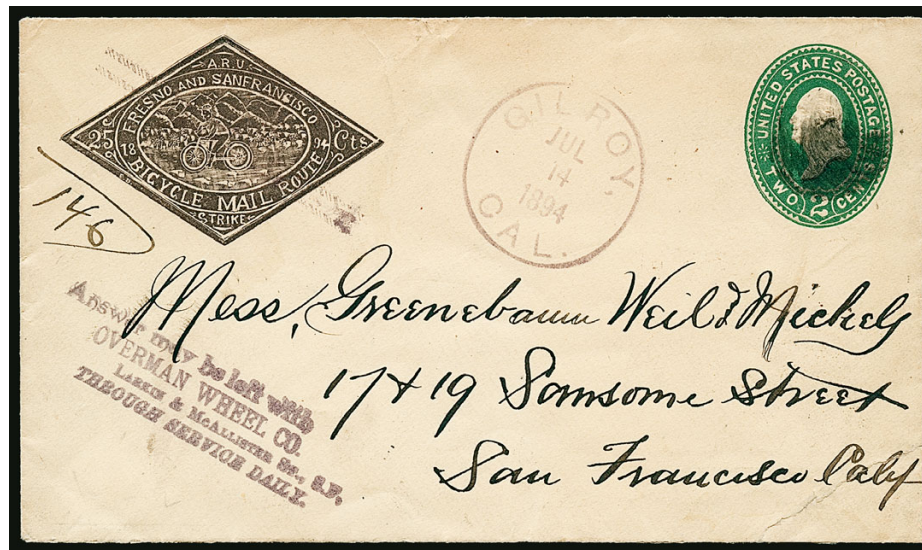 A.R.U.
FRESNO AND SANFRANSISCO
25c 1894 Cts
BICYCLE MAIL ROUTE
STRIKE
146
GILROY,
JUL
14
1894
CAL.
UNITED STATES POSTAGE
TWO 2 CENTS
Mess, Greenebaum Weil & Michels
17 & 19 Sansome Street
San Francisco Calif
Answer may be left with
OVERMAN WHEEL CO.
LARKIN & MCALLISTER STS., S.F.
THROUGH SERVICE DAILY.